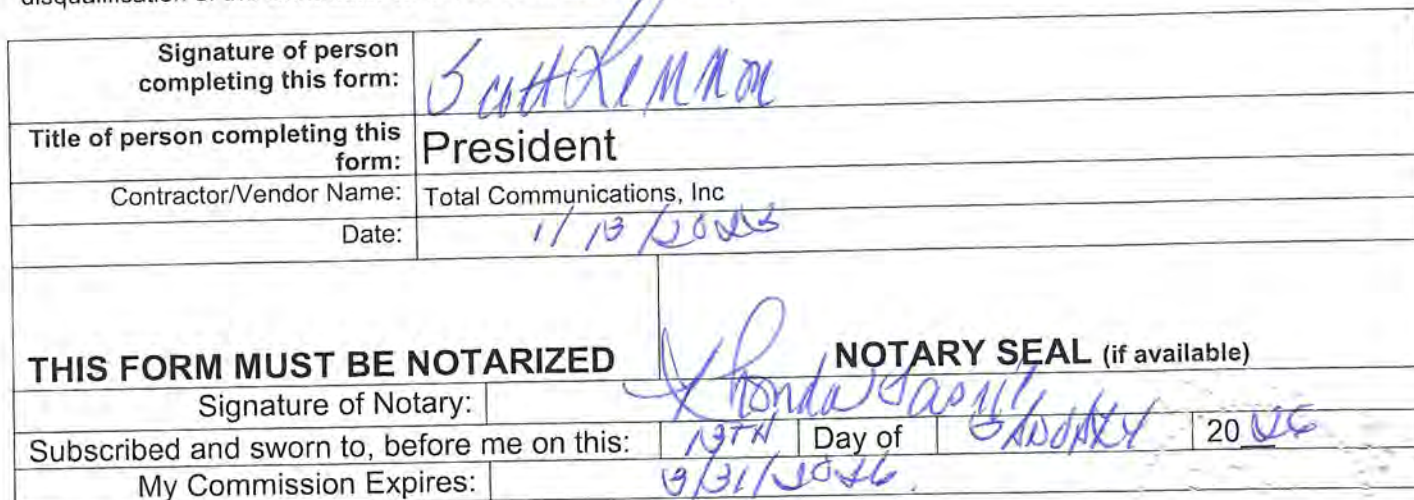 Signature of person
completing this form: Scott Lemmon
Title of person completing this
form: President
Contractor/Vendor Name: Total Communications, Inc
Date: 1/13/
THIS FORM MUST BE NOTARIZED
NOTARY SEAL (if available)
Signature of Notary: Rhonda
Subscribed and sworn to, before me on this: 13TH Day of JANUARY 20
My Commission Expires: 3/31/2026